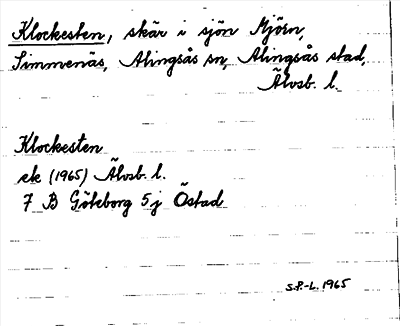 Klockesten, skär i sjön Mjörn,
Simmenäs, Alingsås sn, Alingsås stad,
Älvsb. l.
Klockesten
ek (1965) Älvsb. l.
7 B Göteborg 5j Östad
S.P.-L. 1965